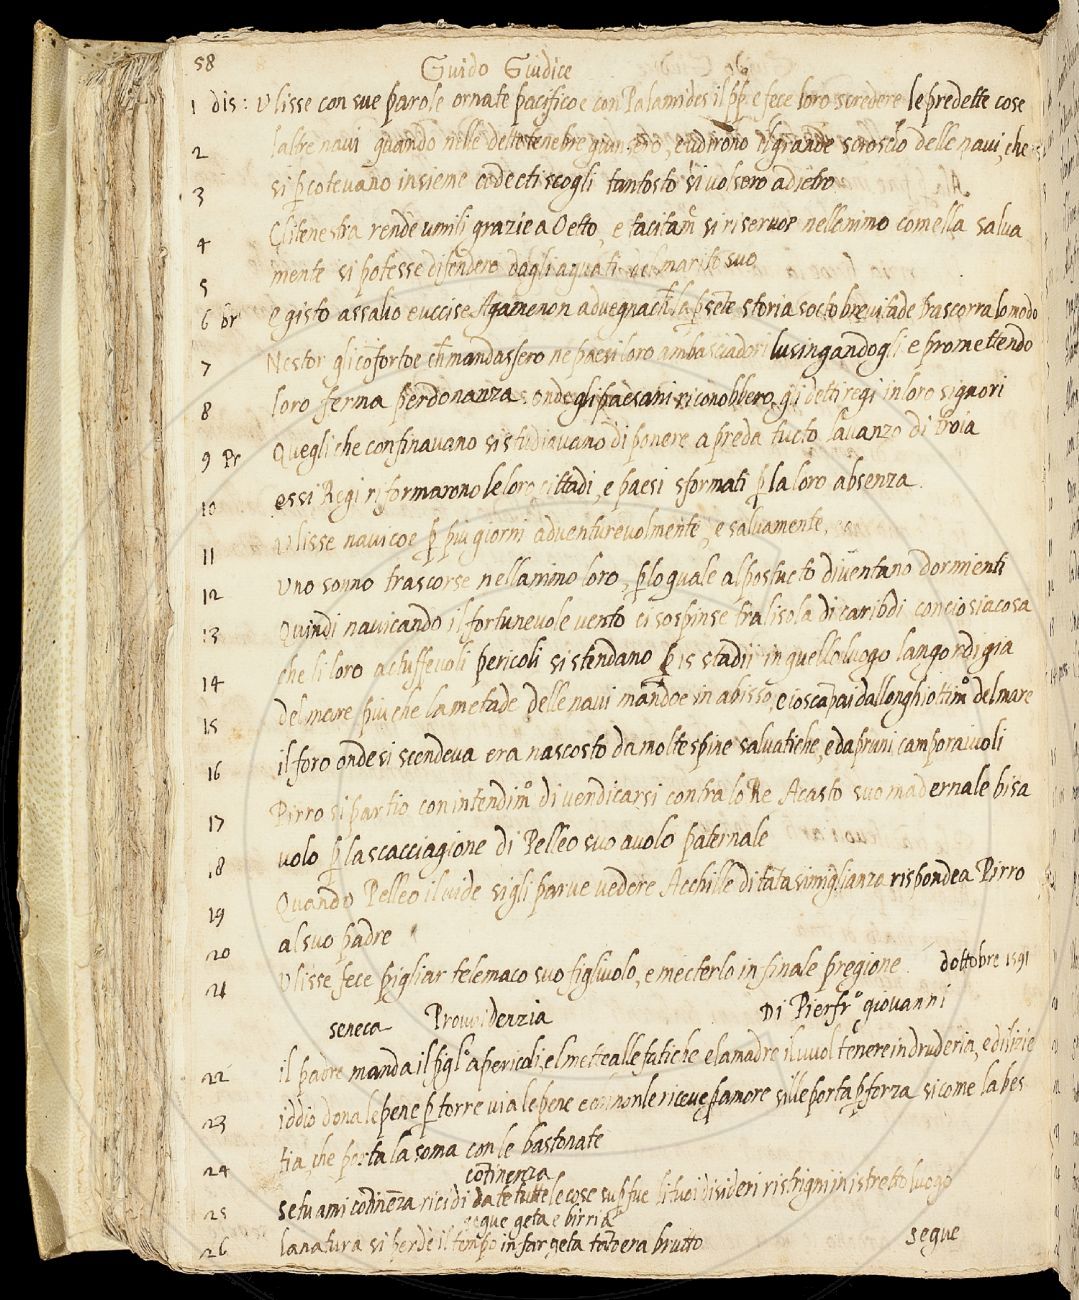 58
Guido Giudice
1 dis: Ulisse con sue parole ornate pacificoe con Palamides il ppe e fece loro scredere le predette cose
2 laltre navi quando nelle dette tenebre giunsero, e udirono il grande scroscio delle navi, che
3 si pcotevano insieme co decti scogli tantosto si volsero adietro
4 Clitenestra rendè umili grazie a Oetto, e tacitamte si riservoe nellanimo comella salva
5 mente si potesse difendere dagli aguati del marito suo
6 br egisto assalio e uccise Agamenon advegnach la psente storia socto brevitade trascorra lo modo
7 Nestor gli cofortoe ch mandassero ne paesi loro ambasciadori lusingandogli e promettendo
8 loro ferma perdonanza. onde gli paesani riconobbero gli detti regi in loro signori
9 Pr Quegli che confinavano si studiavano di ponere a preda tucto lavanzo di troia
10 essi Regi riformarono le loro cittadi, e paesi sformati p la loro absenza.
11 Ulisse navicoe p piu giorni adventurevolmente, e salvamente.
12 Uno sonno trascorse nellanimo loro, plo quale al postucto diventano dormienti
13 Quindi navicando il fortunevole vento ci sospinse tra lisola di caribdi conciosiacosa
14 che li loro actuffevoli pericoli si stendano p is stadii in quello luogo langordigia
15 del mare piu che la metade delle navi mandoe in abisso, e io scapai dallonghiottimo del mare
16 il foro onde si scendeva era nascosto da molte spine salvatiche, e da pruni camporaiuoli
17 Pirro si partio con intendimo di vendicarsi contra lo Re Acasto suo madernale bisa
18 volo p la scacciagione di Pelleo suo avolo paternale
19 Quando Pelleo il vide si gli parve vedere Acchille di tata simiglianza rispondea Pirro
20 al suo padre
21 Ulisse fece pigliar telemaco suo figliuolo, e mecterlo in finale pregione. dottobre 1591
seneca Provvidenzia Di Pierfro giovanni
22 il padre manda il figlo a pericoli, el mette alle fatiche e la madre il vuol tenere in druderia, e dilizie
23 iddio dona le pene p torre via le pene e chi non le riceve p amore si lle porta p forza si come la bes
24 tia, che porta la soma con le bastonate
continenza
25 se tu ami cotineza ricidi da te tutte le cose supflue li tuoi disideri ristrigni in istretto luogo
segue geta e birria
26 la natura si perdè il tempo in far geta tato era brutto
segue